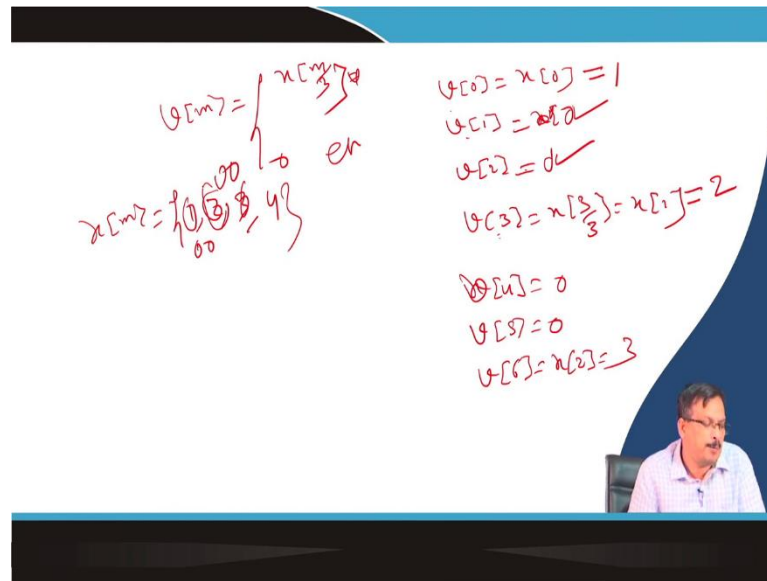 v[m] = { x[m/3]
0 en
00
x[m] = {1, 3, , 4}
00
v[0] = x[0] = 1
v[1] =
v[2] =
v[3] = x[3/3] = x[1] = 2
v[4] = 0
v[5] = 0
v[6] = x[2] = 3